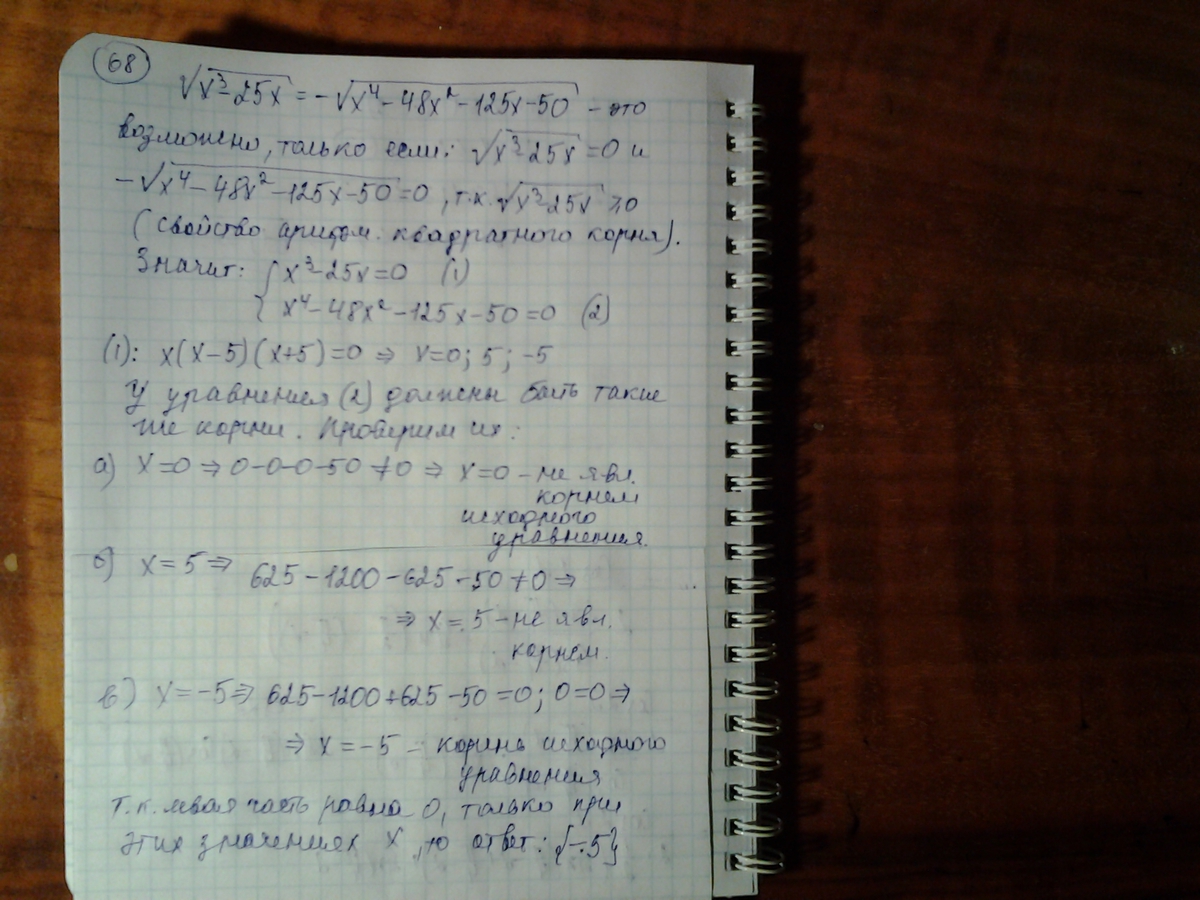 68
√x³-25x = -√x⁴-48x²-125x-50 - это
возможно, только если: √x³-25x = 0 и
-√x⁴-48x²-125x-50 = 0, т.к. √x³-25x ≥ 0
(свойство арифм. квадратного корня).
Значит: { x³-25x=0 (1)
x⁴-48x²-125x-50=0 (2)
(1): x(x-5)(x+5)=0 ⇒ x=0; 5; -5
У уравнения (2) должны быть такие
же корни. Проверим их:
а) x=0 ⇒ 0-0-0-50≠0 ⇒ x=0 - не явл.
корнем
исходного
уравнения.
б) x=5 ⇒ 625-1200-625-50≠0 ⇒
⇒ x=5 - не явл.
корнем.
в) x=-5 ⇒ 625-1200+625-50=0; 0=0 ⇒
⇒ x=-5 - корень исходного
уравнения
т.к. левая часть равна 0, только при
этих значениях x, то ответ: {-5}